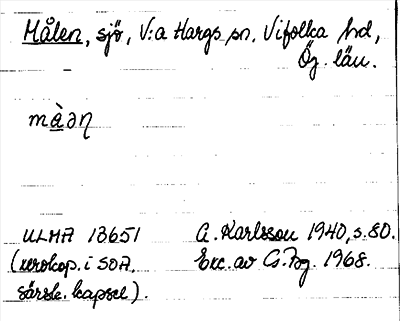 Målen, sjö, V:a Hargs sn. Vifolka hd,
Ög. län.
màən
ULMA 13651 A. Karlsson 1940, s. 80.
(xerokop. i SOA, Exc. av G. Bg. 1968.
särsk. kapsel).